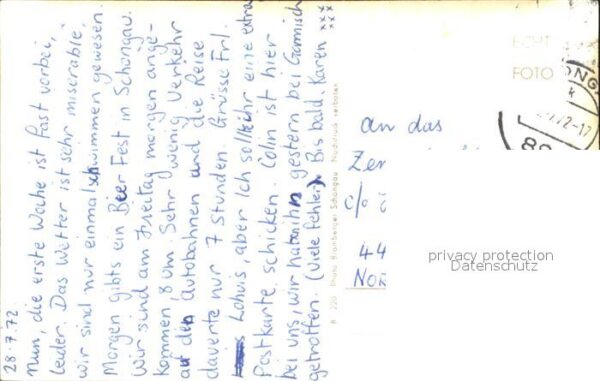 28.7.72
Nun, die erste Woche ist fast vorbei,
leider. Das Wetter ist sehr miserable,
wir sind nur einmal schwimmen gewesen.
Morgen gibts ein Bier Fest in Schongau.
Wir sind am Freitag morgen ange-
kommen, 8 Uhr. Sehr wenig Verkehr
auf den Autobahnen und die Reise
dauerte nur 7 Stunden. Grüsse Frl.
Lohvis, aber Ich soll ihr eine extra
Postkarte schicken. Colin ist hier
bei uns, wir haben ihn gestern bei Garmisch
getroffen. (Viele Fehler). Bis bald Karen xxx
xxx
B 220 Photo Bromberger Schongau Nachdruck verboten
ECHT
FOTO
an das
Zen
c/o
44
Nor
privacy protection
Datenschutz